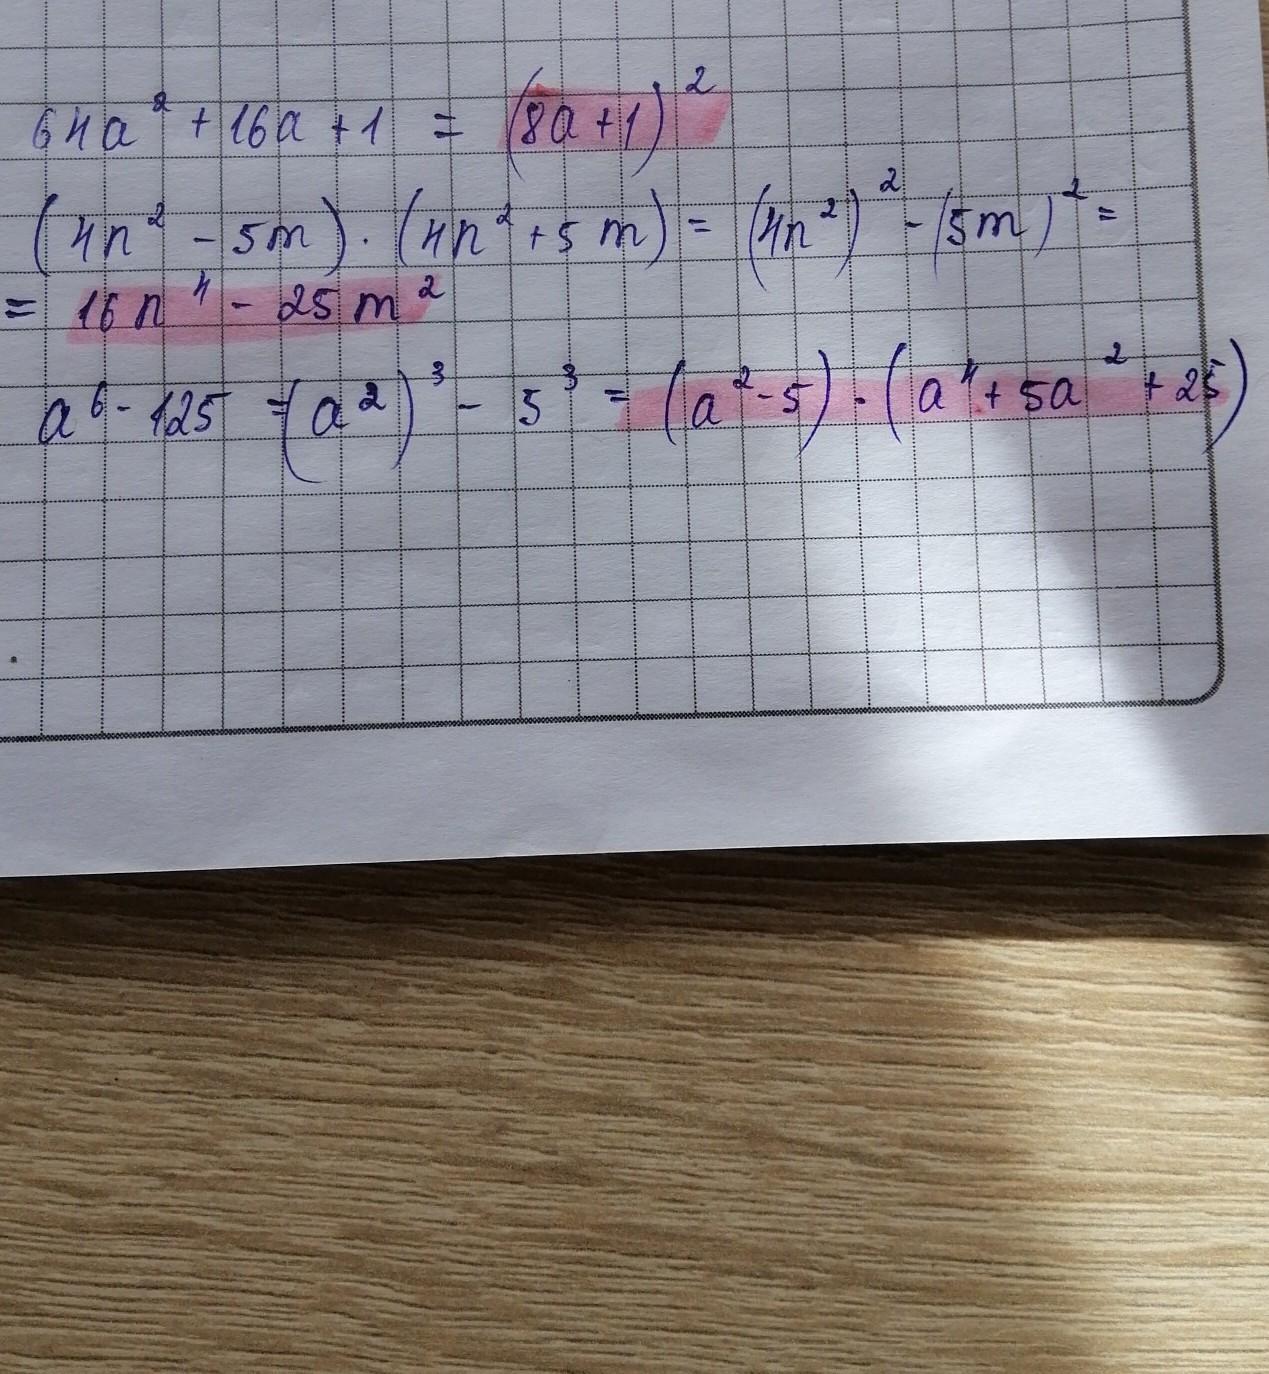 64a² + 16a + 1 = (8a + 1)²
(4n² - 5m) · (4n² + 5m) = (4n²)² - (5m)² =
= 16n⁴ - 25m²
a⁶ - 125 = (a²)³ - 5³ = (a² - 5) · (a⁴ + 5a² + 25)